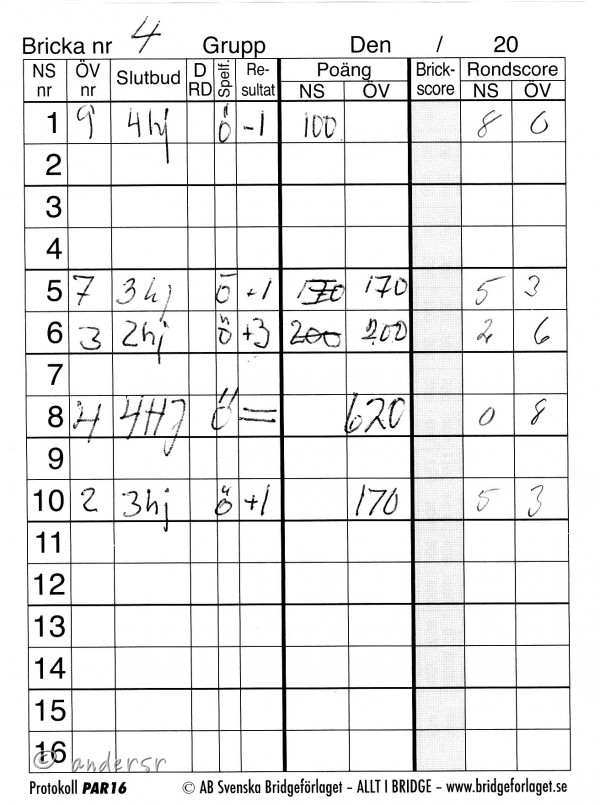 Bricka nr 4 Grupp Den / 20
NS nr ÖV nr Slutbud D RD Spelf. Re-sultat Poäng NS ÖV Brick-score Rondscore NS ÖV
1 9 4hj Ö -1 100 8 0
2
3
4
5 7 3hj Ö +1 170 170 5 3
6 3 2hj Ö +3 200 200 2 6
7
8 4 4HJ Ö = 620 0 8
9
10 2 3hj Ö +1 170 5 3
11
12
13
14
15
16
© andersr
Protokoll PAR16 © AB Svenska Bridgeförlaget – ALLT I BRIDGE – www.bridgeforlaget.se